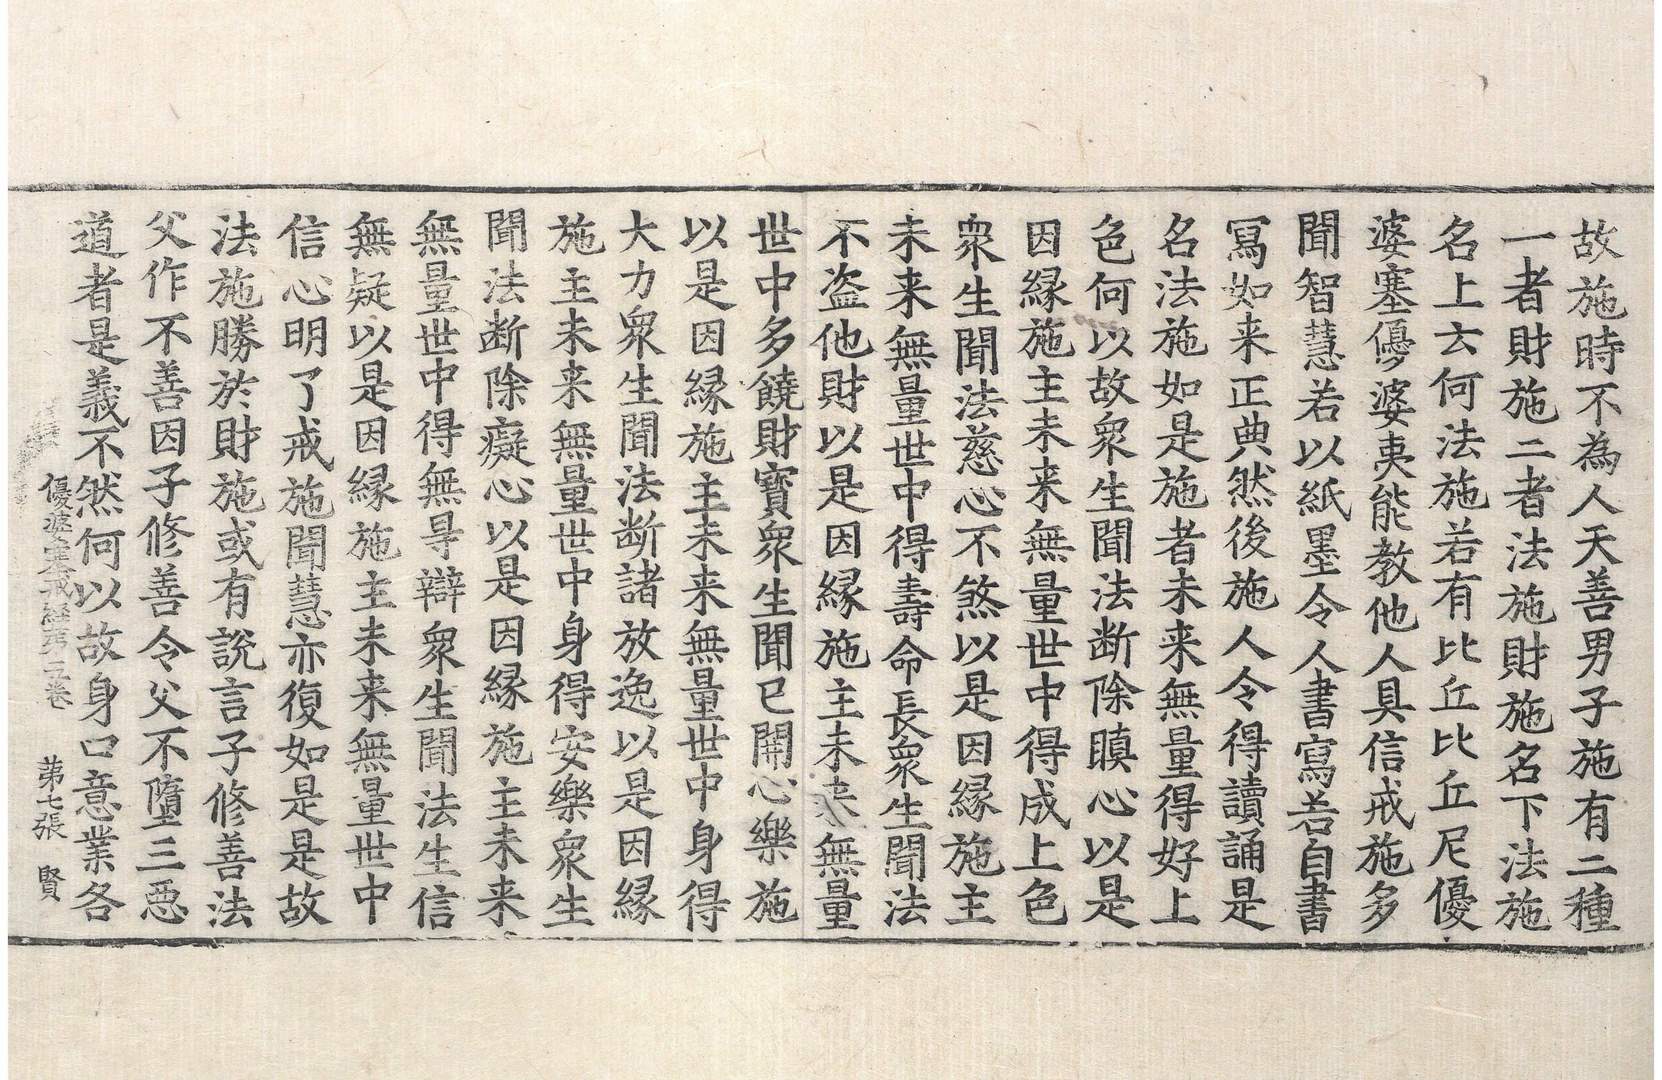 故施時不為人天善男子施有二種
一者財施二者法施財施名下法施
名上云何法施若有比丘比丘尼優
婆塞優婆夷能教他人具信戒施多
聞智慧若以紙墨令人書寫若自書
寫如来正典然後施人令得讀誦是
名法施如是施者未来無量得好上
色何以故衆生聞法断除瞋心以是
因縁施主未来無量世中得成上色
衆生聞法慈心不煞以是因縁施主
未来無量世中得壽命長衆生聞法
不盗他財以是因縁施主未来無量
世中多饒財寳衆生聞已開心樂施
以是因縁施主未来無量世中身得
大力衆生聞法断諸放逸以是因縁
施主未来無量世中身得安樂衆生
聞法断除癡心以是因縁施主未来
無量世中得無㝵辯衆生聞法生信
無疑以是因縁施主未来無量世中
信心明了戒施聞慧亦復如是是故
法施勝於財施或有說言子修善法
父作不善因子修善令父不墮三惡
道者是義不然何以故身口意業各
優婆塞戒経苐五卷 苐七張 賢